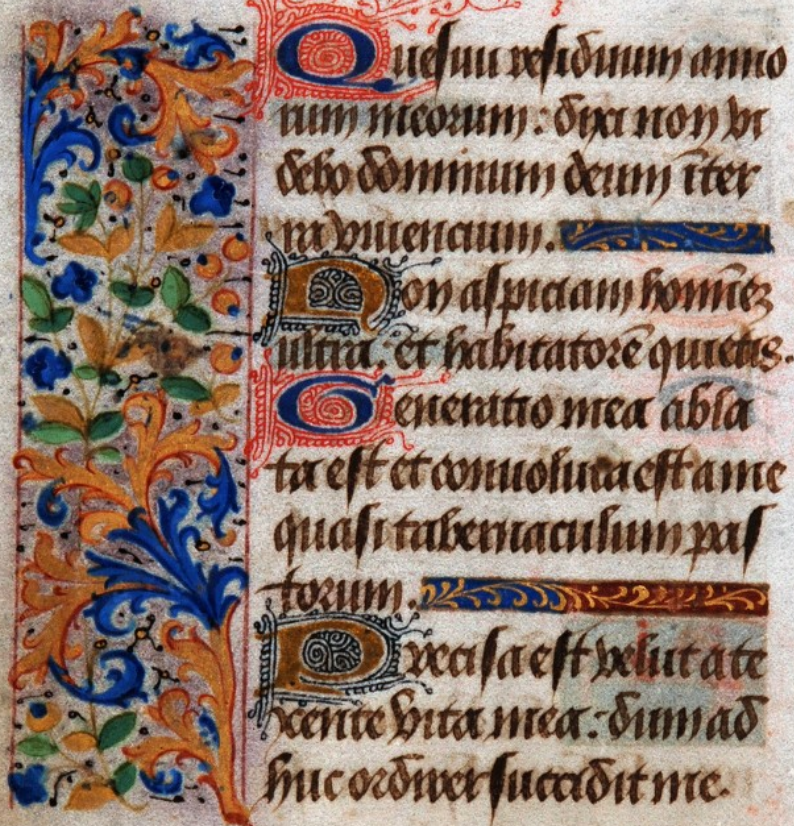 Quesiui residuum anno
rum meorum: dixi non vi
debo dominum deum īter
ra viuencium.
Non aspiciam homīeꝫ
ultra. et habitatorē quietis.
Generatio mea abla
ta est et conuoluta est a me
quasi tabernaculum pas
torum.
Precisa est velut a te
xente vita mea: dum ad
huc ordirer succidit me.